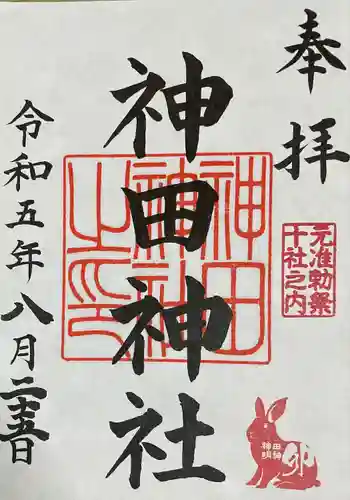 奉拝
元准勅祭
十社之内
神田神社
神田
神社
之印
神田
明神
卯
令和五年八月二十五日